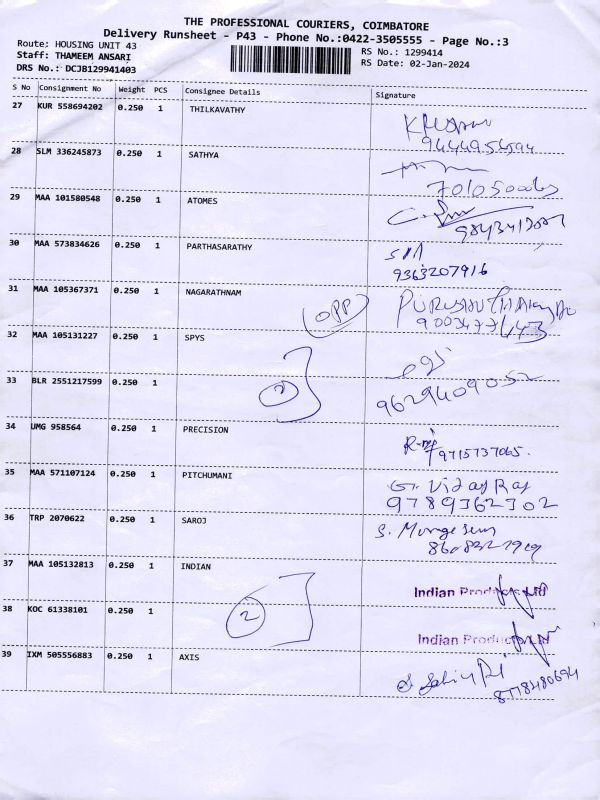 THE PROFESSIONAL COURIERS, COIMBATORE
Delivery Runsheet - P43 - Phone No.:0422-3505555 - Page No.:3
Route: HOUSING UNIT 43
Staff: THAMEEM ANSARI
DRS No.: DCJB129941403
RS No.: 1299414
RS Date: 02-Jan-2024
S No Consignment No Weight PCS Consignee Details Signature
27 KUR 558694202 0.250 1 THILKAVATHY
28 SLM 336245873 0.250 1 SATHYA
29 MAA 101580548 0.250 1 ATOMES
30 MAA 573834626 0.250 1 PARTHASARATHY
9363207916
31 MAA 105367371 0.250 1 NAGARATHNAM
OPP
32 MAA 105131227 0.250 1 SPYS
2
33 BLR 2551217599 0.250 1
9629409052
34 UMG 958564 0.250 1 PRECISION
9715737065.
35 MAA 571107124 0.250 1 PITCHUMANI
G. Viday Raj
9789362302
36 TRP 2070622 0.250 1 SAROJ
37 MAA 105132813 0.250 1 INDIAN
Indian
2
38 KOC 61338101 0.250 1
Indian
39 IXM 505556883 0.250 1 AXIS